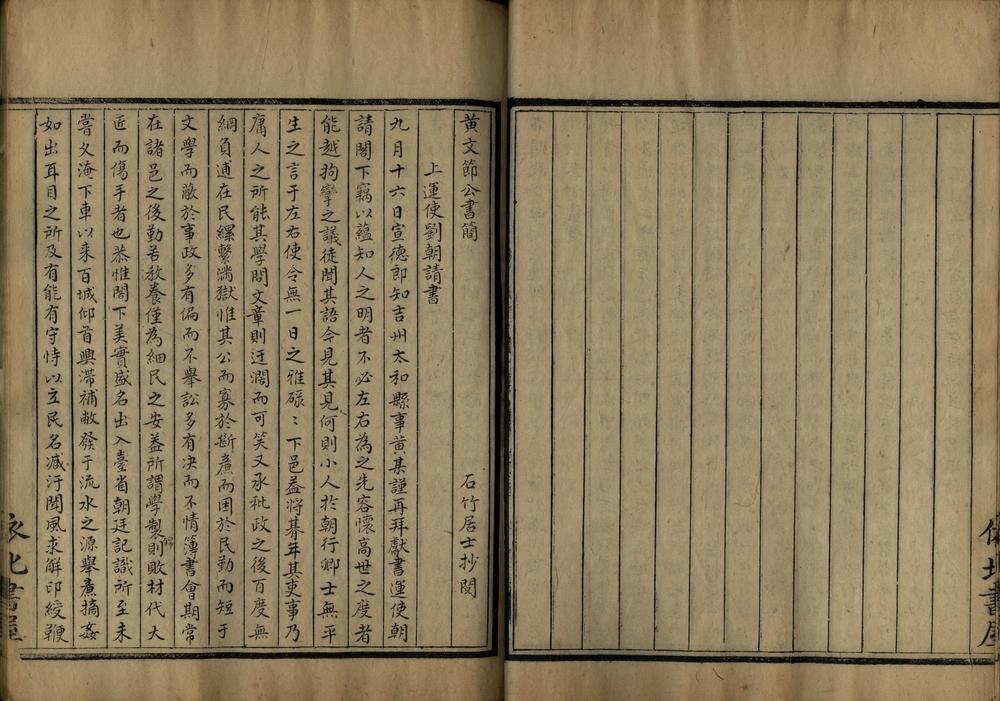 黄文節公書簡　石竹居士抄閱
上運使劉朝請書
九月十六日宣德郎知吉州太和縣事黄某謹再拜獻書運使朝
請閣下竊以蘊知人之明者不必左右為之先容懷高世之度者
能越拘攣之議徒聞其語今見其見何則小人於朝行鄉士無平
生之言于左右使令無一日之雅碌〻下邑益將朞年其吏事乃
庸人之所能其學問文章則迂濶而可笑又承秕政之後百度無
綱負逋在民纍繫滿獄惟其公而寡於斷廉而困於民勤而短于
文學而蔽於事政多有偏而不舉訟多有决而不情簿書會期常
在諸邑之後勤苦教養僅為細民之安葢所謂學製則敗材代大
匠而傷手者也恭惟閣下美實盛名出入臺省朝廷記識所至未
嘗久淹下車以来百城仰首興滞補敝發于流水之源舉廉摘姦
如出耳目之所及有能有守恃以立民名减汙聞風求解印綬鞭
書屋
書屋